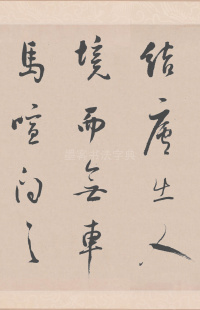 結廬在人
境而無車
馬喧問君